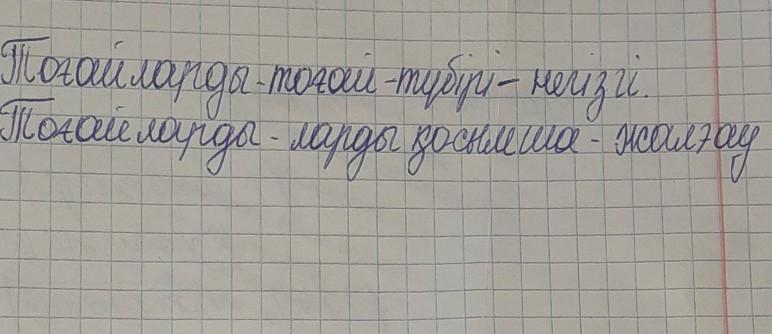 Тоғайларды - тоғай - түбірі - негізгі.
Тоғайларды - ларды қосымша - жалғау